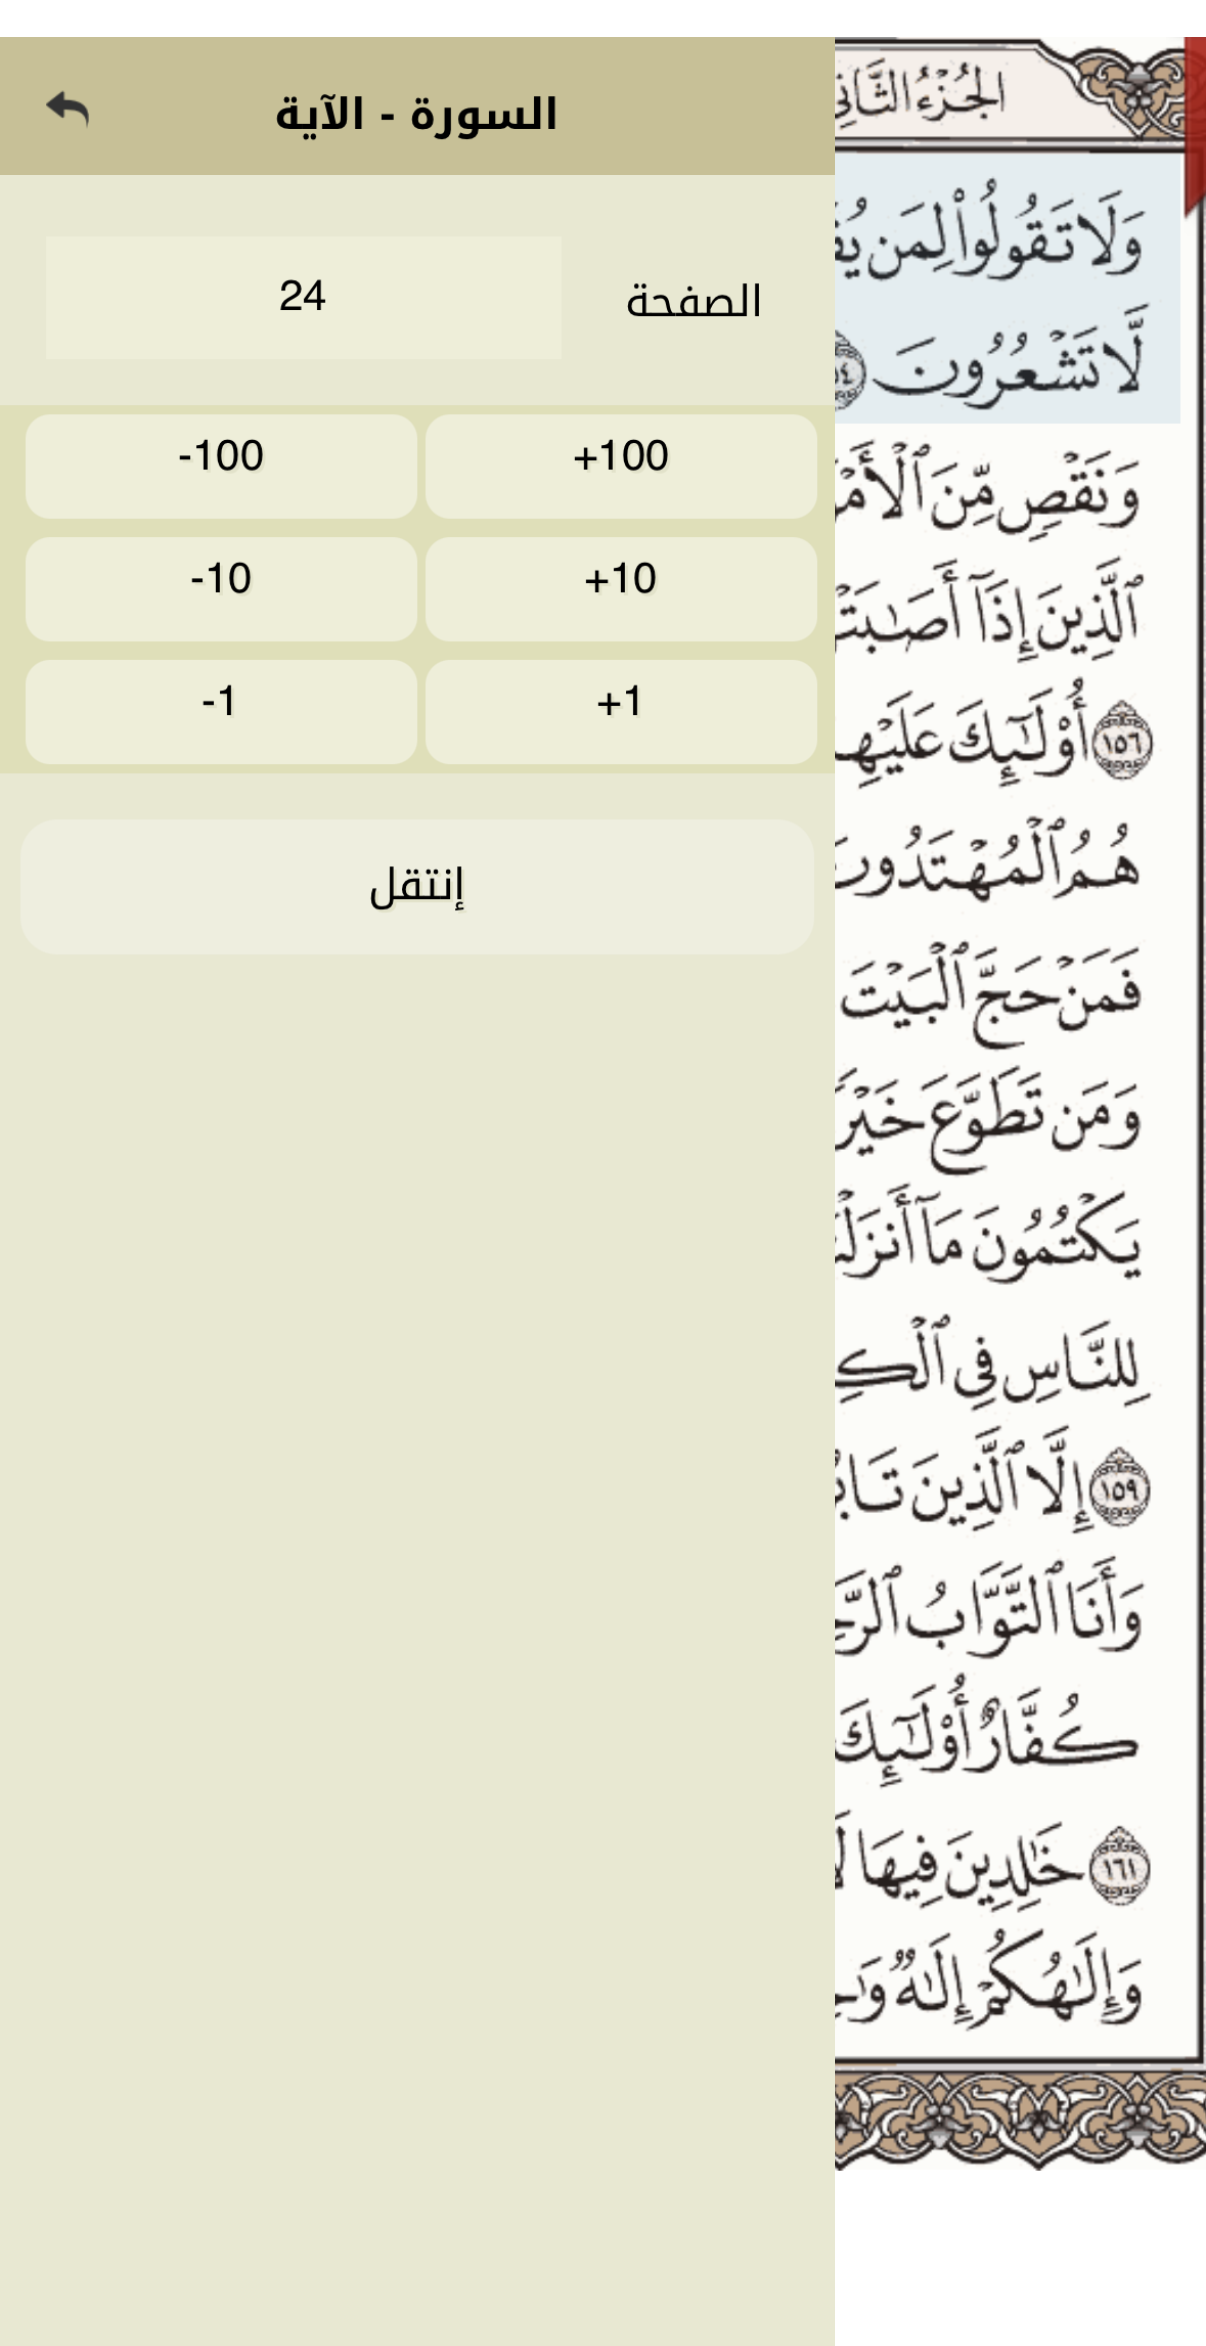 السورة - الآية
الصفحة
24
-100
+100
-10
+10
-1
+1
إنتقل
الجُزْءُ الثَّانِي
وَلَا تَقُولُوا۟ لِمَن
لَّا تَشْعُرُونَ
وَنَقْصٍ مِّنَ ٱلْأَمْ
ٱلَّذِينَ إِذَآ أَصَـٰبَتْ
١٥٦ أُو۟لَـٰٓئِكَ عَلَيْهِ
هُمُ ٱلْمُهْتَدُونَ
فَمَنْ حَجَّ ٱلْبَيْتَ
وَمَن تَطَوَّعَ خَيْرً
يَكْتُمُونَ مَآ أَنزَلْ
لِلنَّاسِ فِى ٱلْكِ
١٥٩ إِلَّا ٱلَّذِينَ تَابُ
وَأَنَا ٱلتَّوَّابُ ٱلرَّحِ
كُفَّارٌ أُو۟لَـٰٓئِكَ
١٦١ خَـٰلِدِينَ فِيهَا لَ
وَإِلَـٰهُكُمْ إِلَـٰهٌ وَٰحِ